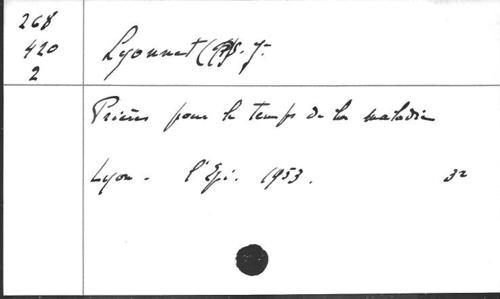 268
420
2
Lyonnet (P.) S. J.
Prières pour le temps de la maladie
Lyon - l'Epi. 1953. 32